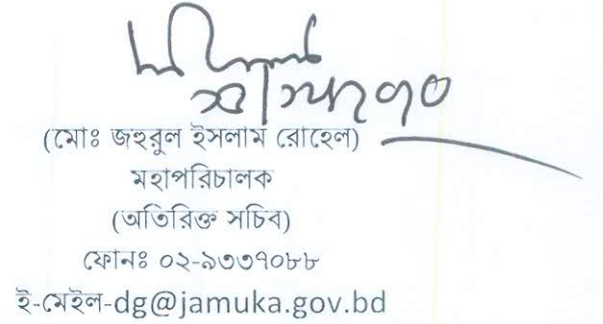 (মোঃ জহুরুল ইসলাম রোহেল)
মহাপরিচালক
(অতিরিক্ত সচিব)
ফোনঃ ০২-৯৩৩৭০৮৮
ই-মেইল-dg@jamuka.gov.bd